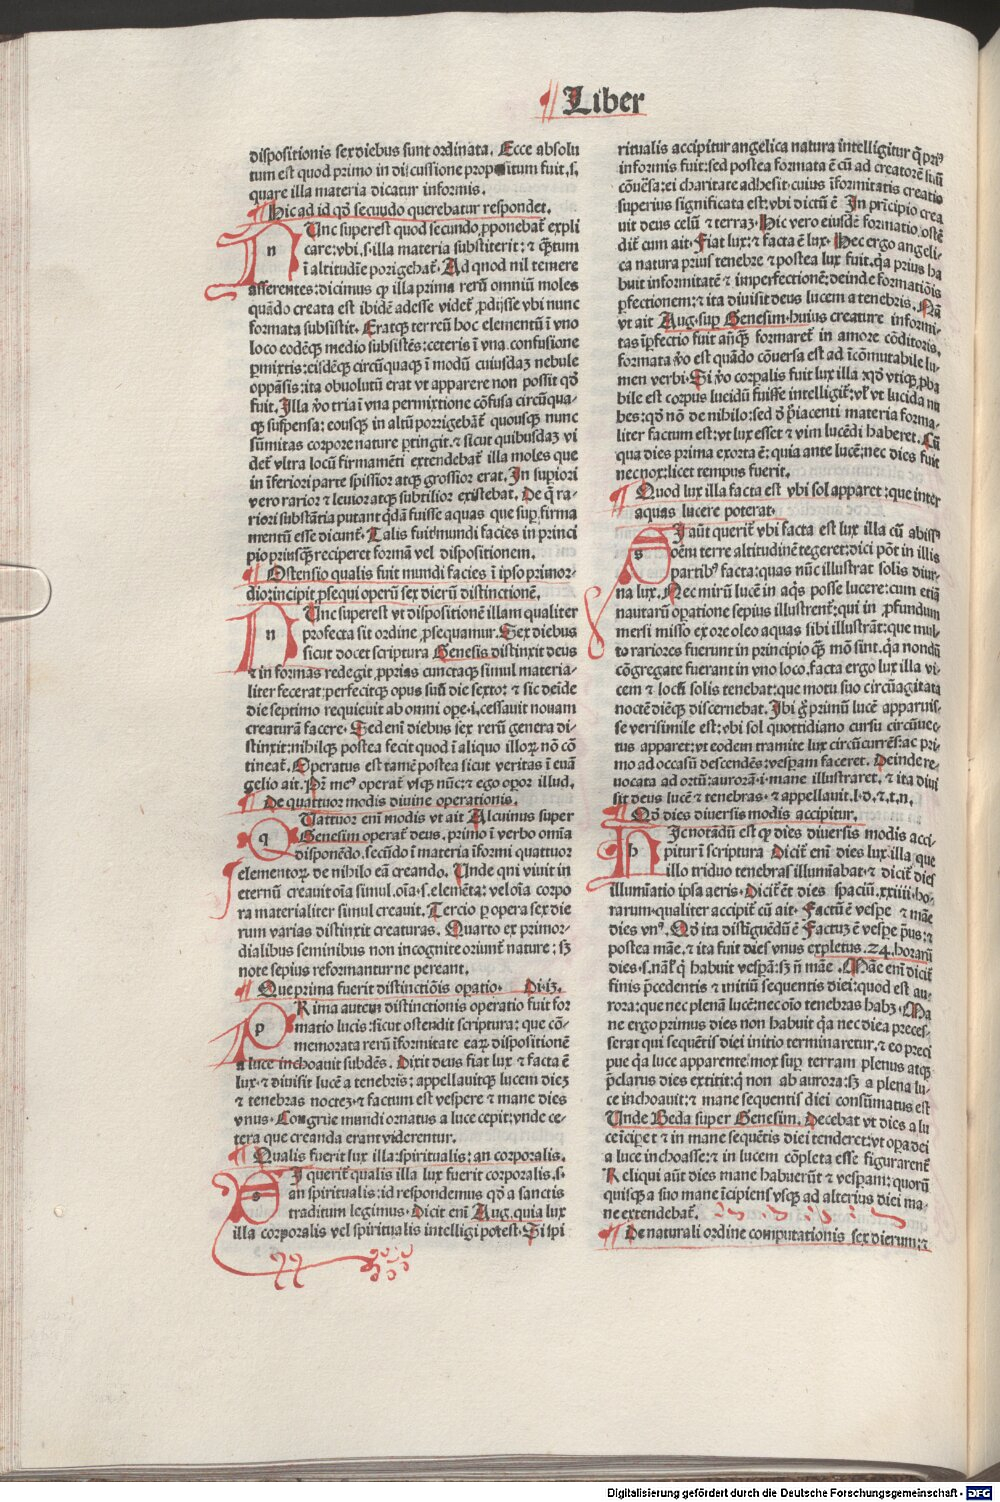 ¶ Liber
dispositionis sex diebus sunt ordinata. Ecce absolu
tum est quod primo in discussione propositum fuit.s.
quare illa materia dicatur informis.
¶ Hic ad id qd̕ secundo querebatur respondet.
NUnc superest quod secundo ꝓponebat̕ expli
care: vbi.s.illa materia substiterit: ⁊ q̄ꝫtum
ī altitudīe porigebat̕. Ad quod nil temere
asserentes: dicimus ꝙ illa prima rerū omniū moles
quādo creata est ibidē adesse videt̕ ꝓdijsse vbi nunc
formata subsistit. Eratqꝫ terreū hoc elementū ī vno
loco eodēqꝫ medio subsistēs: ceteris ī vna confusione
ꝑmixtis: eisdēqꝫ circūquaqꝫ ī modū cuiusdaꝫ nebule
oppāsis: ita obuolutū erat vt apparere non possit qd̕
fuit. Illa v̕o tria ī vna permixtione cōfusa circūqua-
qꝫ suspensa: eousqꝫ in altū porrigebāt̕ quousqꝫ nunc
sūmitas corporee nature ꝑtingit. ⁊ sicut quibusdaꝫ vi
det̕ vltra locū firmamēti extendebat̕ illa moles que
in īferiori parte spissior atqꝫ grossior erat. In supiori
vero rarior ⁊ leuior atqꝫ subtilior existebat. De q̄ ra-
riori substātia putant q̄dā fuisse aquas que suꝑ firma
mentū esse dicunt̕. Talis fuit mundi facies in princi
pio priusqꝫ reciperet formā vel dispositionem.
¶ Ostensio qualis fuit mundi facies ī ipso primor-
dio: incipit ꝓsequi operū sex dierū distinctionē.
NUnc superest vt dispositionē illam qualiter
profecta sit ordine ꝓsequamur. Sex diebus
sicut docet scriptura Genesis distinxit deus
⁊ in formas redegit ꝓprias cunctaqꝫ simul materia-
liter fecerat: perfecitqꝫ opus suū die sexto: ⁊ sic deīde
die septimo requieuit ab omni oꝑe.i.cessauit nouam
creaturā facere. Sed enī diebus sex rerū genera di-
stinxit: nihilqꝫ postea fecit quod ī aliquo illoꝝ nō cō
tineat̕. Operatus est tamē postea sicut veritas ī euā
gelio ait. Pr̄ meꝰ operat̕ vsqꝫ nūc: ⁊ ego opor illud.
¶ De quattuor modis diuine operationis.
QUattuor enī modis vt ait Alcuinus super
Genesim operat̕ deus. primo ī verbo omīa
disponēdo. secūdo ī materia īformi quattuor
elementoꝝ de nihilo eā creando. Unde qui viuit in
eternū creauit oīa simul. oīa.s.elemēta: vel oīa corpo
ra materialiter simul creauit. Tercio ꝑ opera sex die
rum varias distinxit creaturas. Quarto ex primor-
dialibus seminibus non incognite oriunt̕ nature: sꝫ
note sepius reformantur ne pereant.
¶ Que prima fuerit distinctiōis oꝑatio. Di.iꝫ.
PRima autem distinctionis operatio fuit for
matio lucis: sicut ostendit scriptura: que cō-
memorata rerū īformitate earꝫ dispositionē
a luce inchoauit subdēs. Dixit deus fiat lux ⁊ facta ē
lux. ⁊ diuisit lucē a tenebris: appellauitqꝫ lucem dieꝫ
⁊ tenebras nocteꝫ. ⁊ factum est vespere ⁊ mane dies
vnus. Congrue mundi ornatus a luce cepit: vnde ce-
tera que creanda erant viderentur.
¶ Qualis fuerit lux illa: spiritualis: an corporalis.
SI querit̕ qualis illa lux fuerit corporalis.s.
an spiritualis: id respondemus qd̕ a sanctis
traditum legimus. Dicit enī Aug. quia lux
illa corporalis vel spiritualis intelligi potest. Si spi
ritualis accipitur angelica natura intelligitur q̄ priꝰ
informis fuit: sed postea formata ē cū ad creatorē suū
cōuēsa: ei charitate adhesit. cuius īformitatis creatio
superius significata est: vbi dictū ē In prīcipio crea
uit deus celū ⁊ terraꝫ. Hic vero eiusdē formatio ostē
dit̕ cum ait. Fiat lux: ⁊ facta ē lux. Hec ergo angeli-
ca natura prius tenebre ⁊ postea lux fuit. qa prius ha
buit informitatē ⁊ imperfectionē: deinde formatiōis
ꝑfectionem: ⁊ ita diuisit deus lucem a tenebris. Nā
vt ait Aug. suꝑ Genesim. huius creature informi-
tas īꝑfectio fuit an̄qꝫ formaret̕ in amore cōditoris.
formata v̕o est quādo cōuersa est ad īcōmutabile lu-
men verbi. Si v̕o corꝑalis fuit lux illa
bile est corpus lucidū fuisse intelligit̕: vl̕ vt lucida nu
bes: qd̕ nō de nihilo: sed d̕ p̄iacenti materia forma-
liter factum est: vt lux esset ⁊ vim lucēdi haberet. Cū
qua dies prima exorta ē: quia ante lucē: nec dies fuit
nec nox: licet tempus fuerit.
¶ Quod lux illa facta est vbi sol apparet: que inter
aquas lucere poterat.
SI aūt querit̕ vbi facta est lux illa cū abissꝰ
oēm terre altitudinē tegeret: dici pōt in illis
partibꝰ facta: quas nūc illustrat solis diur-
na lux. Nec mirū lucē in aq̄s posse lucere: cum etiā
nautarū oꝑatione sepius illustrent̕: qui in ꝓfundum
mersi misso ex ore oleo aquas sibi illustrāt: que mul-
to rariores fuerunt in principio qꝫ mō sunt. qa nondū
cōgregate fuerant in vno loco. facta ergo lux illa vi-
cem ⁊ locū solis tenebat: que motu suo circūagitata
noctē diēqꝫ discernebat. Ibi g̕ primū lucē apparuis-
se verisimile est: vbi sol quottidiano cursu circūuec-
tus apparet: vt eodem tramite lux circūcurrēs: ac pri-
mo ad occasū descendēs: vesꝑam faceret. Deinde re-
uocata ad ortū: aurorā.i.mane illustraret. ⁊ ita diui
sit deus lucē ⁊ tenebras. ⁊ appellauit.l.d.⁊.t.n.
¶ Qd̕ dies diuersis modis accipitur.
HIc notādū est ꝙ dies diuersis modis acci
pitur ī scriptura Dicit̕ enī dies lux illa que
illo triduo tenebras illumīabat. ⁊ dicit̕ dies
illumīatio ipsa aeris. Dicit̕ et̄ dies spaciū.xxiiii.ho-
rarum. qualiter accipit̕ cū ait. Factū ē vespe ⁊ māe
dies vnꝰ. Qd̕ ita distīguēdū ē Factuꝫ ē vespe p̄us: ⁊
postea māe. ⁊ ita fuit dies vnus expletus.24.horarū
dies.s.nāl̕ q̄ habuit vespā: sꝫ n̄ māe. Māe enī dicit̕
finis p̄cedentis ⁊ initiū sequentis diei: quod est au-
rora: que nec plenā lucē: nec oīo tenebras habꝫ. Ma
ne ergo primus dies non habuit qa nec diea preces-
serat qui sequētis diei initio terminaretur. ⁊ eo preci
pue qa luce apparente: mox suꝑ terram plenus atqꝫ
p̄clarus dies extitit: q̄ non ab aurora: sꝫ a plena lu-
ce inchoauit: ⁊ mane sequentis diei consūmatus est
Unde Beda super Genesim. Decebat vt dies a lu
ce īciperet ⁊ in mane sequētis diei tenderet: vt oꝑa dei
a luce inchoasse: ⁊ in lucem cōpleta esse figurarent̕
Reliqui aūt dies mane habuerūt ⁊ vesꝑam: quorū
quisqꝫ a suo mane īcipiens vsqꝫ ad alterius diei ma-
ne extendebat̕.
¶ De naturali ordine computationis sex dierum: ⁊
Digitalisierung gefördert durch die Deutsche Forschungsgemeinschaft - DFG